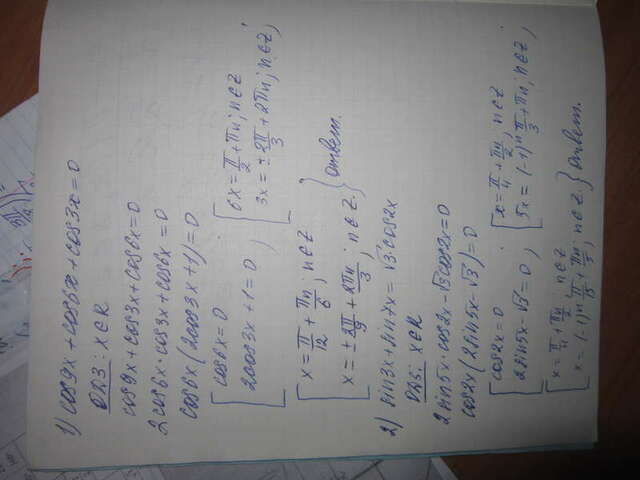 1) cos9x+cos6x+cos3x=0
ОДЗ: x∈R
cos9x+cos3x+cos6x=0
2cos6x·cos3x+cos6x=0
cos6x(2cos3x+1)=0
[cos6x=0
2cos3x+1=0;
[6x=π/2+πn; n∈Z
3x=±2π/3+2πn; n∈Z;
[x=π/12+πn/6; n∈Z
x=±2π/9+2πn/3; n∈Z.} Ответ.
2) sin3x+sin7x=√3cos2x
ОДЗ: x∈R
2sin5x·cos2x-√3cos2x=0
cos2x(2sin5x-√3)=0
[cos2x=0
2sin5x-√3=0;
[x=π/4+πn/2; n∈Z
5x=(-1)ⁿπ/3+πn; n∈Z;
[x=π/4+πn/2; n∈Z
x=(-1)ⁿπ/15+πn/5; n∈Z.} Ответ.